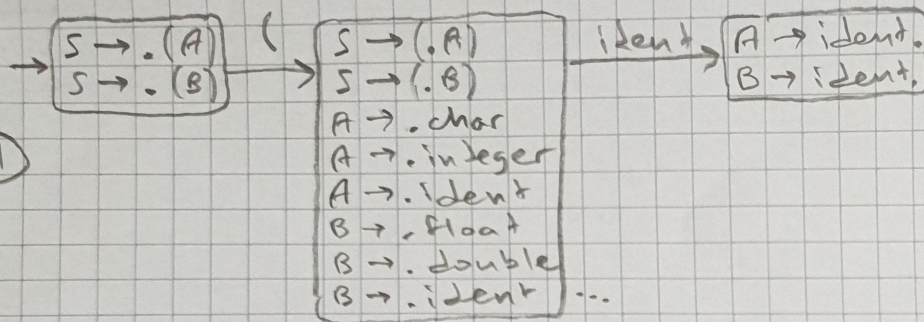 → S → .(A)
S → .(B)
(
S → (.A)
S → (.B)
A → .char
A → .integer
A → .ident
B → .float
B → .double
B → .ident ...
ident
A → ident.
B → ident.